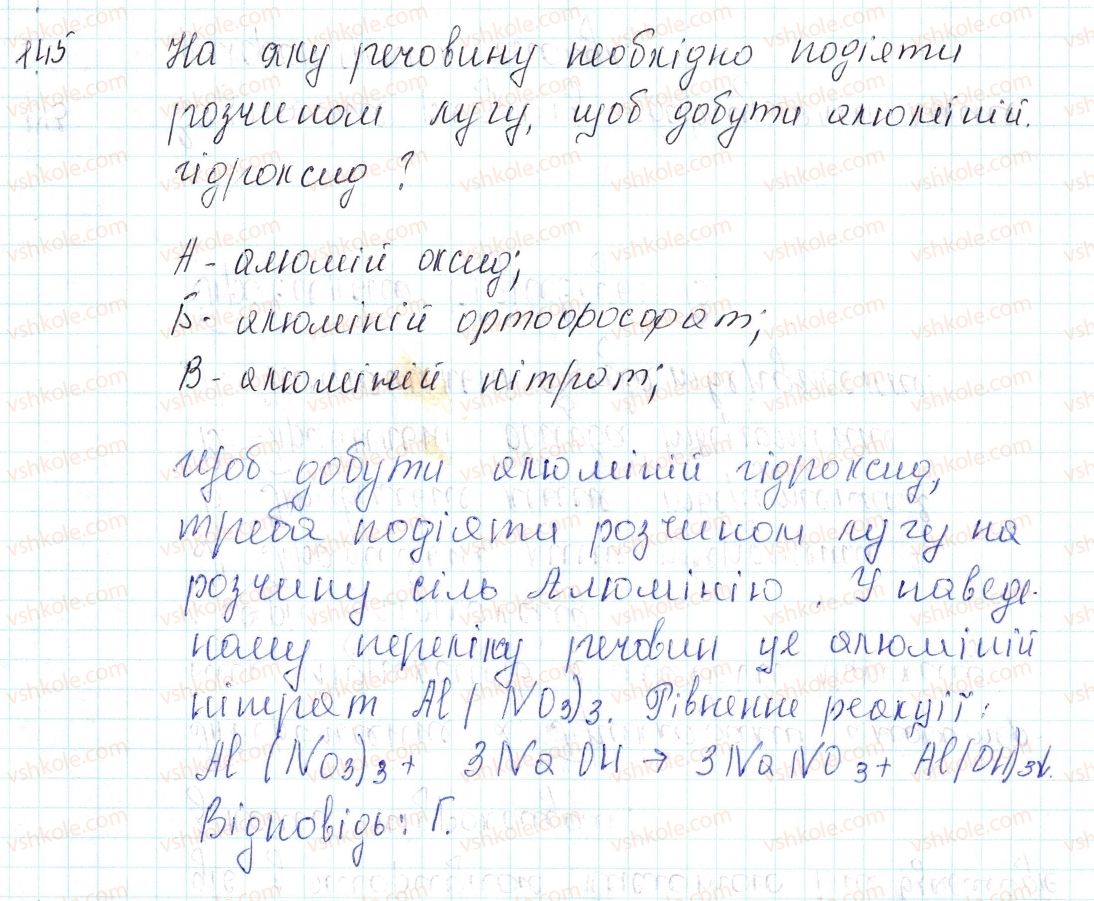 145 На яку речовину необхідно подіяти
розчином лугу, щоб добути алюміній
гідроксид?
А - алюмій оксид;
Б - алюміній ортофосфат;
В - алюміній нітрат;
Щоб добути алюміній гідроксид,
треба подіяти розчином лугу на
розчину сіль Алюмінію. У наведе-
ному переліку речовин це алюміній
нітрат Al(NO3)3. Рівненне реакції:
Al(NO3)3 + 3NaOH → 3NaNO3 + Al(OH)3↓.
Відповідь: Г.